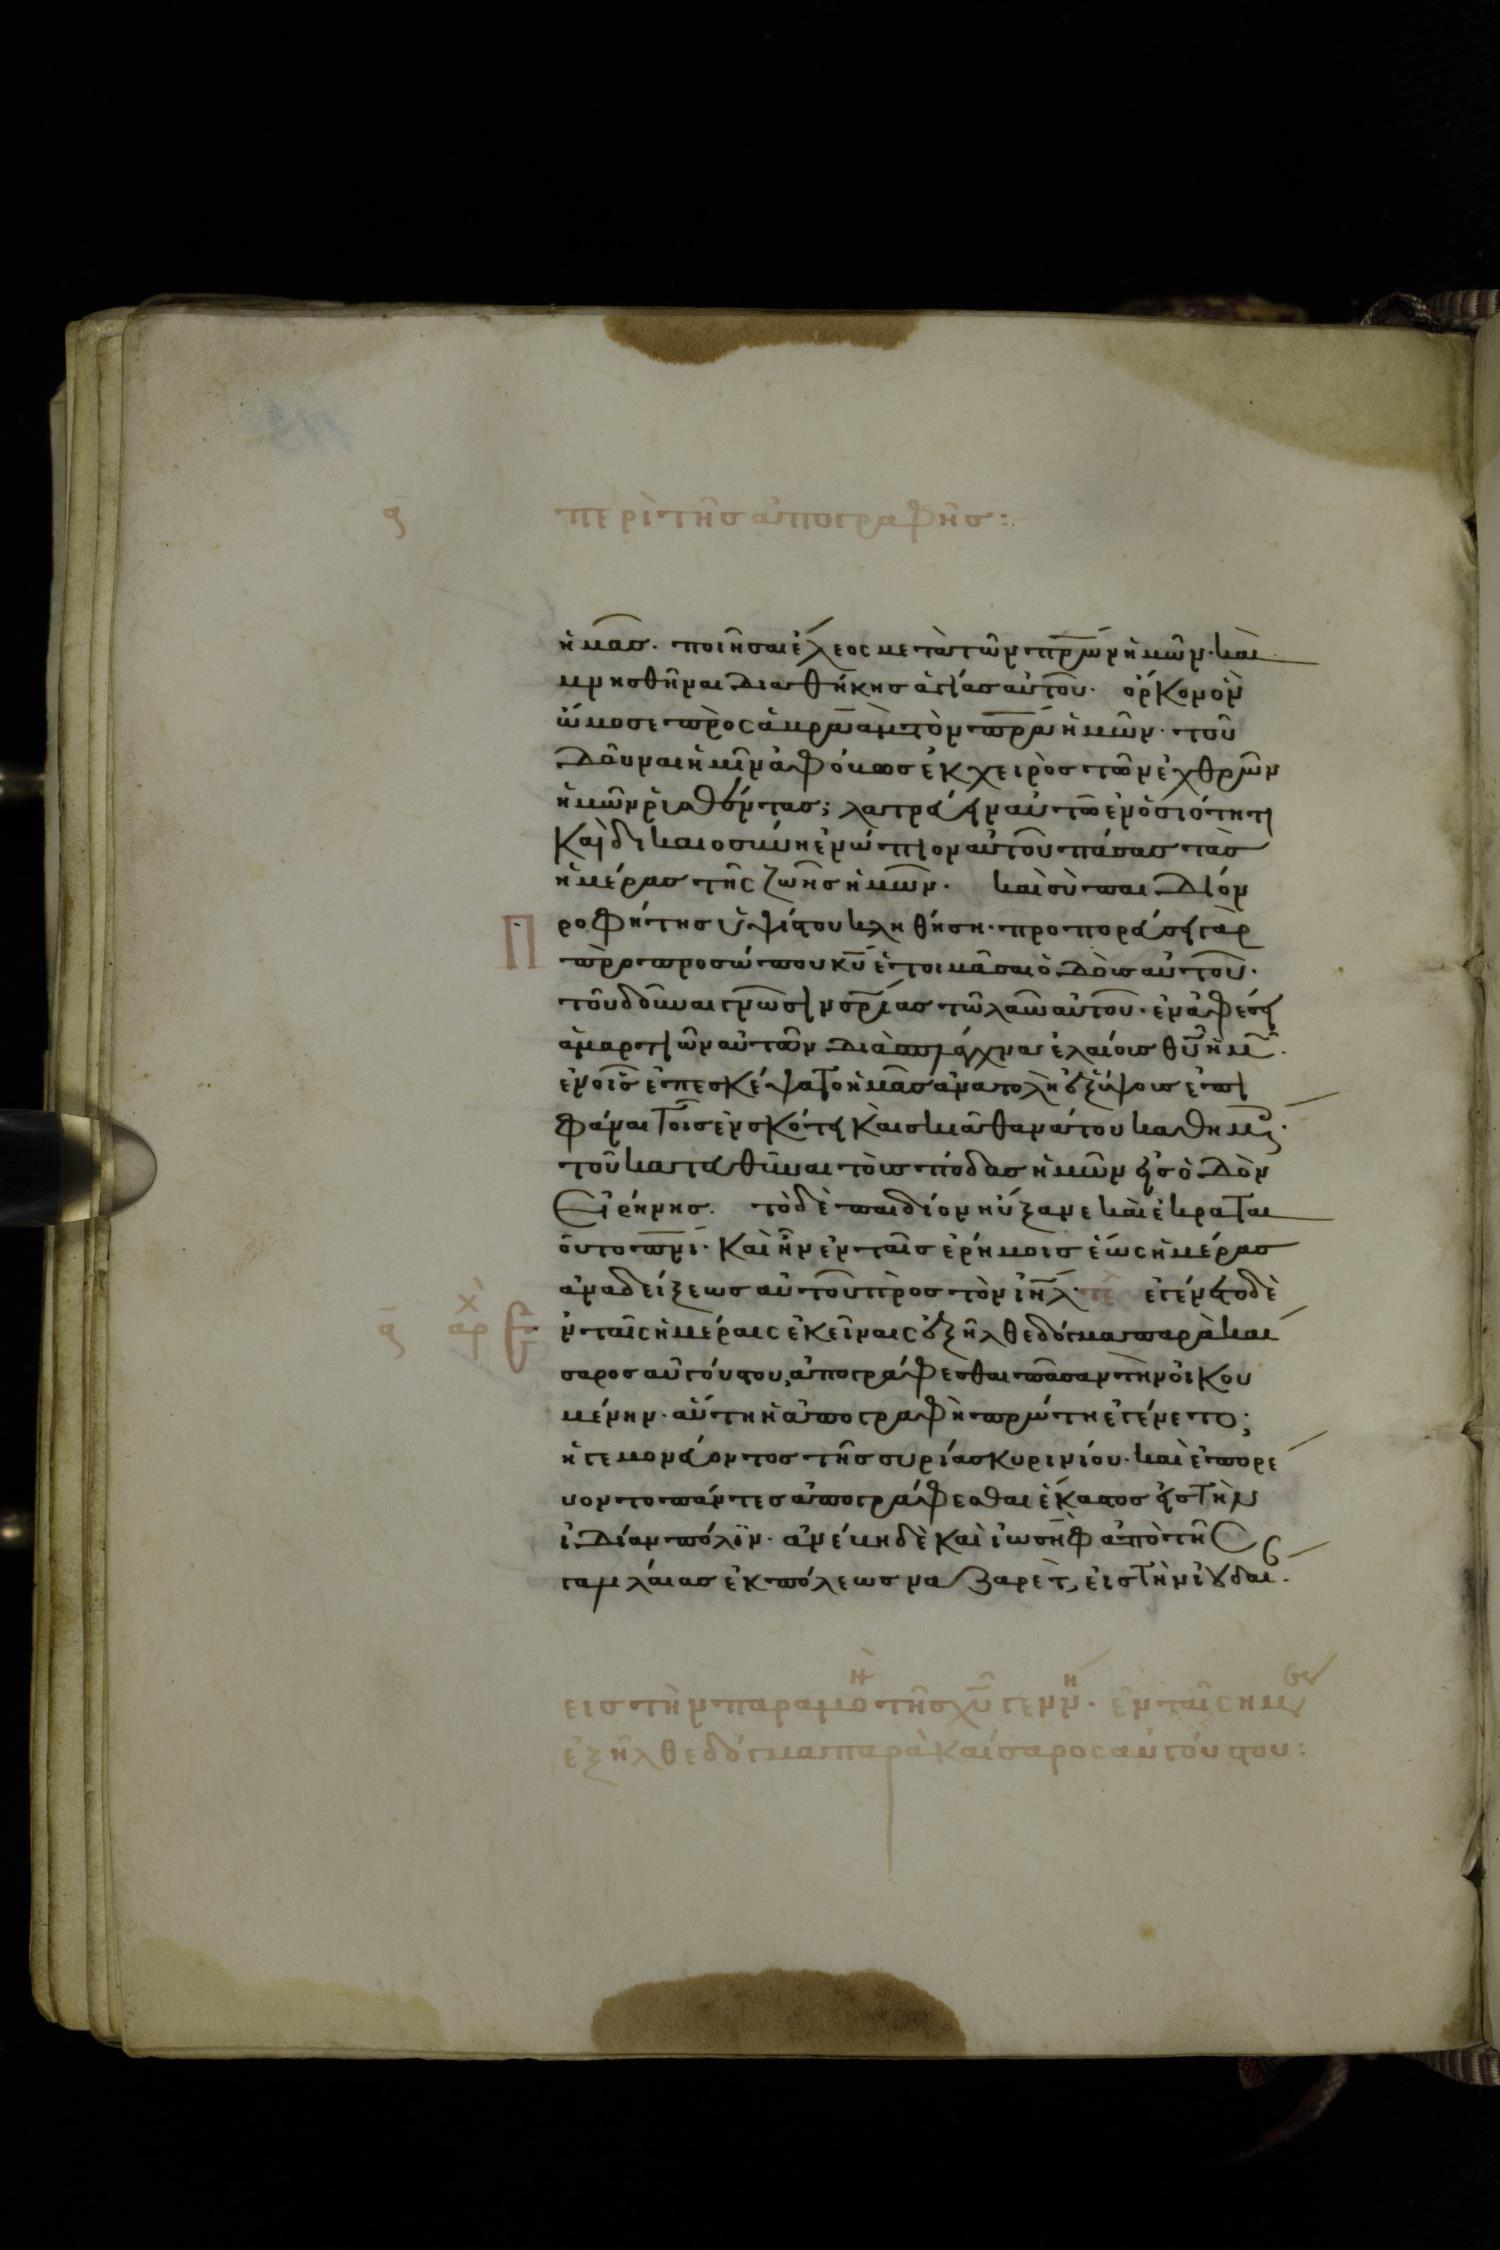 ᾱ περὶ τῆς ἀπογραφῆς:
ἡμᾶς· ποιῆσαι ἔλεος μετὰ τῶν πρ̅ων ἡμῶν· καὶ
μνησθῆναι διαθήκης ἁγίας αὐτοῦ· ὅρκον ὃν
ὤμοσε πρὸς ἀβραὰμ τὸν πρ̅α ἡμῶν· τοῦ
δοῦναι ἡμῖν ἀφόβως ἐκ χειρὸς τῶν ἐχθρῶν
ἡμῶν ῥυσθέντας; λατρεύειν αὐτῶ ἐν ὁσιότητι
καὶ δικαιοσύνη ἐνώπιον αὐτοῦ πάσας τὰς
ἡμέρας τῆς ζωῆς ἡμῶν· καὶ σὺ παιδίον
προφήτης ὑψίστου κληθήση· προπορεύσει γὰρ
πρὸ προσώπου κ̅υ ἑτοιμᾶσαι ὁδοὺς αὐτοῦ·
τοῦ δοῦναι γνῶσιν σρ̅ίας τῶ λαῶ αὐτοῦ· ἐν ἀφέσει
ἁμαρτιῶν αὐτῶν διὰ σπλάχνα ἐλαίους θ̅υ ἡμ·
ἐν οἷς ἐπεσκέψατο ἡμᾶς ἀνατολὴ ἐξ ὕψους ἐπι
φάναι τοῖς ἐν σκότει καὶ σκιᾶ θανάτου καθημ·
τοῦ κατευθῦναι τοὺς πόδας ἡμῶν εἰς ὁδὸν
εἰρήνης· τὸ δὲ παιδίον ηὔξανε καὶ ἐκραται
οῦτο πν̅ι· καὶ ἦν ἐν ταῖς ἐρήμοις ἕως ἡμέρας
ἀναδείξεως αὐτοῦ πρὸς τὸν ἰη̅λ· τε ἐγένετο δὲ
ᾱ χ αρ ἐν ταῖς ἡμέραις ἐκείναις ἐξῆλθε δόγμα παρὰ καί
σαρος αὐγούστου, ἀπογράφεσθαι πᾶσαν τὴν οἰκου
μένην· αὕτη ἡ ἀπογραφὴ πρώτη ἐγένετο;
ἡγεμονεύοντος τῆς συρίας κυρινίου· καὶ ἐπορε
ύοντο πάντες ἀπογράφεσθαι ἕκαστος εἰς τὴν
ἰδίαν πόλιν· ἀνέβη δὲ καὶ ἰωσὴφ ἀπὸ τῆς
γαλιλαίας ἐκ πόλεως ναζαρὲτ, εἰς τὴν ἰουδαι·
εἰς τὴν παραμο τῆς χ̅υ γενν· ἐν ταῖς ημ
ἐξῆλθε δόγμα παρὰ καίσαρος αὐγούστου: